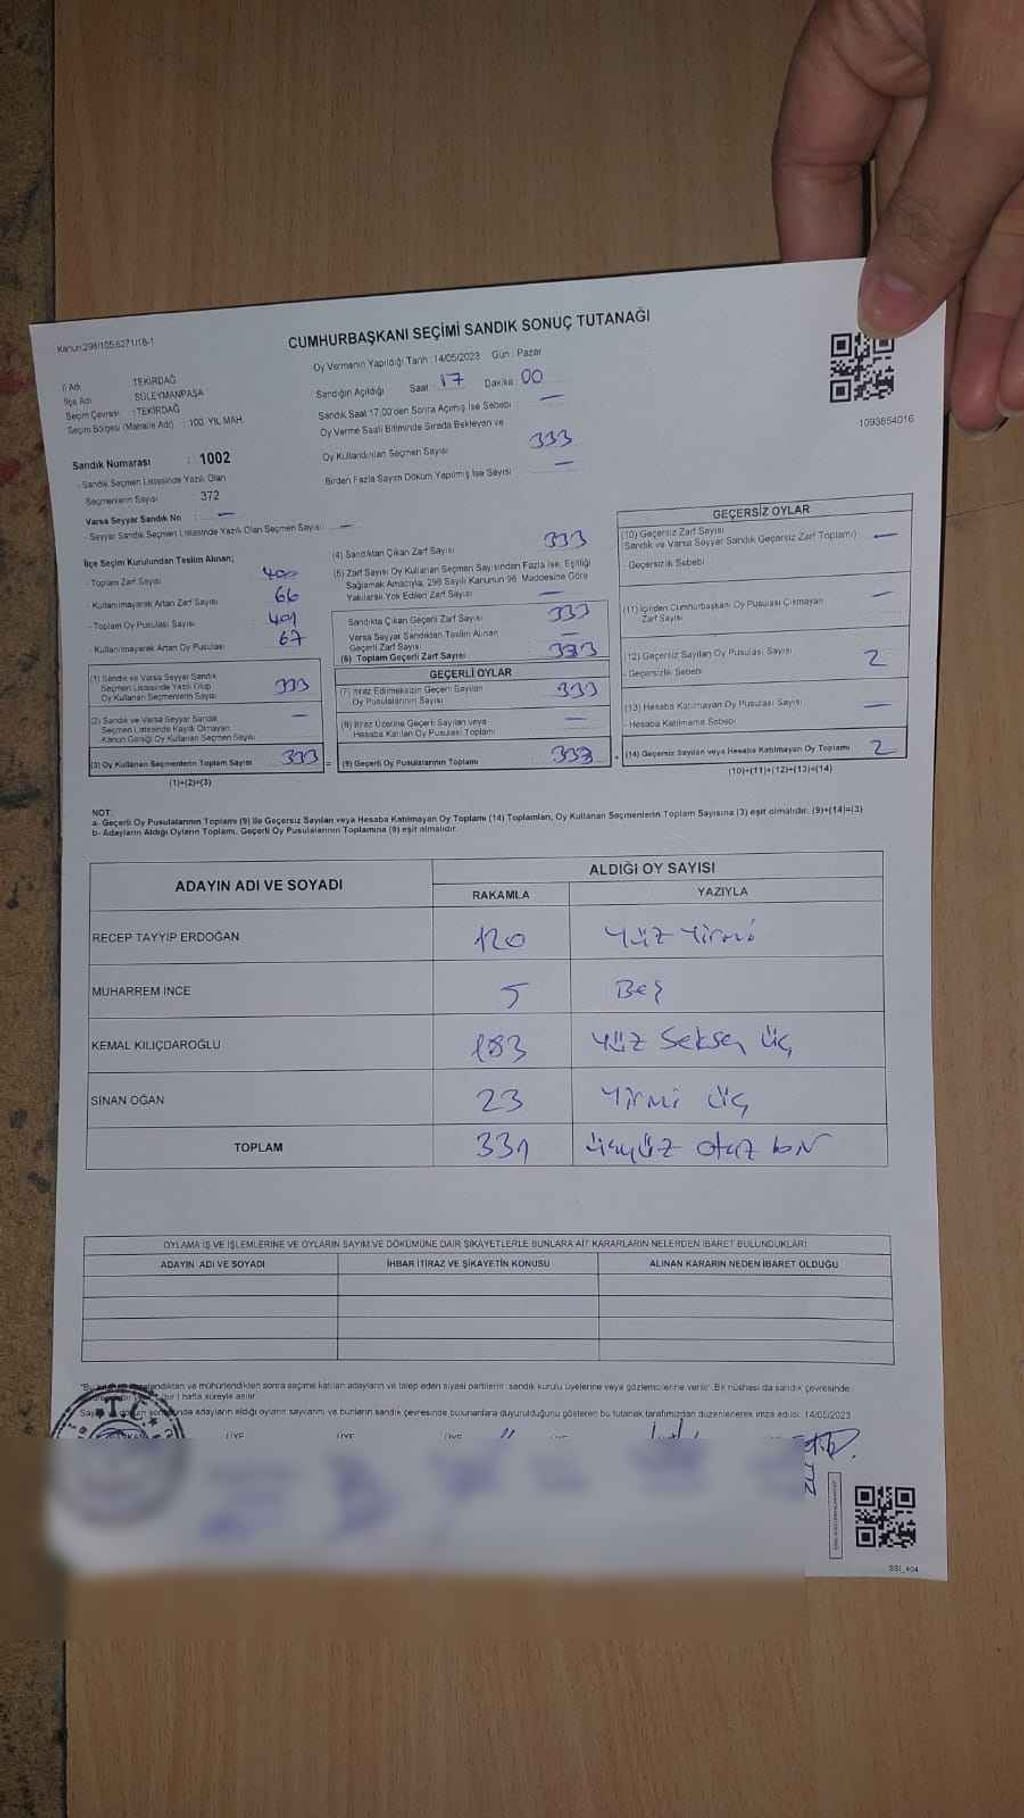 Kanun:298/105,6271/18-1
CUMHURBAŞKANI SEÇİMİ SANDIK SONUÇ TUTANAĞI
Oy Vermenin Yapıldığı Tarih : 14/05/2023 Gün : Pazar
İl Adı : TEKİRDAĞ
İlçe Adı : SÜLEYMANPAŞA
Seçim Çevresi : TEKİRDAĞ
Seçim Bölgesi (Mahalle Adı) : 100. YIL MAH.
Sandık Numarası : 1002
- Sandık Seçmen Listesinde Yazılı Olan
Seçmenlerin Sayısı 372
Varsa Seyyar Sandık No : —
- Seyyar Sandık Seçmen Listesinde Yazılı Olan Seçmen Sayısı : —
Sandığın Açıldığı Saat : 17 Dakika : 00
Sandık Saat 17.00'den Sonra Açılmış İse Sebebi : —
Oy Verme Saati Bitiminde Sırada Bekleyen ve
Oy Kullandırılan Seçmen Sayısı 333
Birden Fazla Sayım Döküm Yapılmış İse Sayısı —
1093654016
İlçe Seçim Kurulundan Teslim Alınan;
- Toplam Zarf Sayısı 400
- Kullanılmayarak Artan Zarf Sayısı 66
- Toplam Oy Pusulası Sayısı 401
- Kullanılmayarak Artan Oy Pusulası 67
(1) Sandık ve Varsa Seyyar Sandık
Seçmen Listesinde Yazılı Olup
Oy Kullanan Seçmenlerin Sayısı 333
(2) Sandık ve Varsa Seyyar Sandık
Seçmen Listesinde Kayıtlı Olmayan
Kanun Gereği Oy Kullanan Seçmen Sayısı —
(3) Oy Kullanan Seçmenlerin Toplam Sayısı 333
(1)+(2)=(3)
(4) Sandıktan Çıkan Zarf Sayısı 333
(5) Zarf Sayısı Oy Kullanan Seçmen Sayısından Fazla İse, Eşitliği
Sağlamak Amacıyla, 298 Sayılı Kanunun 98. Maddesine Göre
Yakılarak Yok Edilen Zarf Sayısı —
Sandıkta Çıkan Geçerli Zarf Sayısı 333
Varsa Seyyar Sandıktan Teslim Alınan
Geçerli Zarf Sayısı —
(6) Toplam Geçerli Zarf Sayısı 333
GEÇERLİ OYLAR
(7) İtiraz Edilmeksizin Geçerli Sayılan
Oy Pusulasının Sayısı 333
(8) İtiraz Üzerine Geçerli Sayılan veya
Hesaba Katılan Oy Pusulası Toplamı —
(9) Geçerli Oy Pusulalarının Toplamı
GEÇERSİZ OYLAR
(10) Geçersiz Zarf Sayısı
Sandık ve Varsa Seyyar Sandık Geçersiz Zarf Toplamı) —
Geçersizlik Sebebi
(11) İçinden Cumhurbaşkanı Oy Pusulası Çıkmayan
Zarf Sayısı —
(12) Geçersiz Sayılan Oy Pusulası Sayısı 2
- Geçersizlik Sebebi
(13) Hesaba Katılmayan Oy Pusulası Sayısı —
- Hesaba Katılmama Sebebi
(14) Geçersiz Sayılan veya Hesaba Katılmayan Oy Toplamı 2
(10)+(11)+(12)+(13)=(14)
NOT:
a- Geçerli Oy Pusulalarının Toplamı (9) ile Geçersiz Sayılan veya Hesaba Katılmayan Oy Toplamı (14) Toplamları, Oy Kullanan Seçmenlerin Toplam Sayısına (3) eşit olmalıdır. (9)+(14)=(3)
b- Adayların Aldığı Oyların Toplamı, Geçerli Oy Pusulalarının Toplamına (9) eşit olmalıdır.
ADAYIN ADI VE SOYADI ALDIĞI OY SAYISI
RAKAMLA YAZIYLA
RECEP TAYYİP ERDOĞAN 120 Yüz Yirmi
MUHARREM İNCE 5 Beş
KEMAL KILIÇDAROĞLU 183 Yüz Seksen Üç
SİNAN OĞAN 23 Yirmi Üç
TOPLAM 331 Üçyüz otuz bir
OYLAMA İŞ VE İŞLEMLERİNE VE OYLARIN SAYIM VE DÖKÜMÜNE DAİR ŞİKAYETLERLE BUNLARA AİT KARARLARIN NELERDEN İBARET BULUNDUKLARI
ADAYIN ADI VE SOYADI İHBAR İTİRAZ VE ŞİKAYETİN KONUSU ALINAN KARARIN NEDEN İBARET OLDUĞU
ve mühürlendikten sonra seçime katılan adayların ve talep eden siyasi partilerin sandık kurulu üyelerine veya gözlemcilerine verilir. Bir nüshası da sandık çevresinde
1 hafta süreyle asılır.
adayların aldığı oyların sayısını ve bunların sandık çevresinde bulunanlara duyurulduğunu gösteren bu tutanak tarafımızdan düzenlenerek imza edildi. 14/05/2023
T.C.
ÜYE ÜYE ÜYE
SSI_404